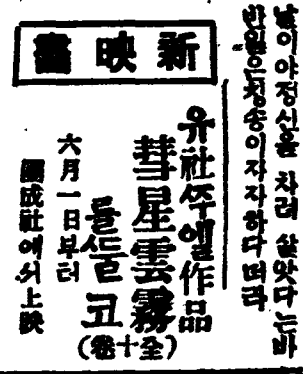 차려 살앗다는바
칭송이자자하다더라
新映畵
유社쥬엘作品
彗星雲霧
를뚤코
(全十卷)
六月一日부터
團成社에서上映